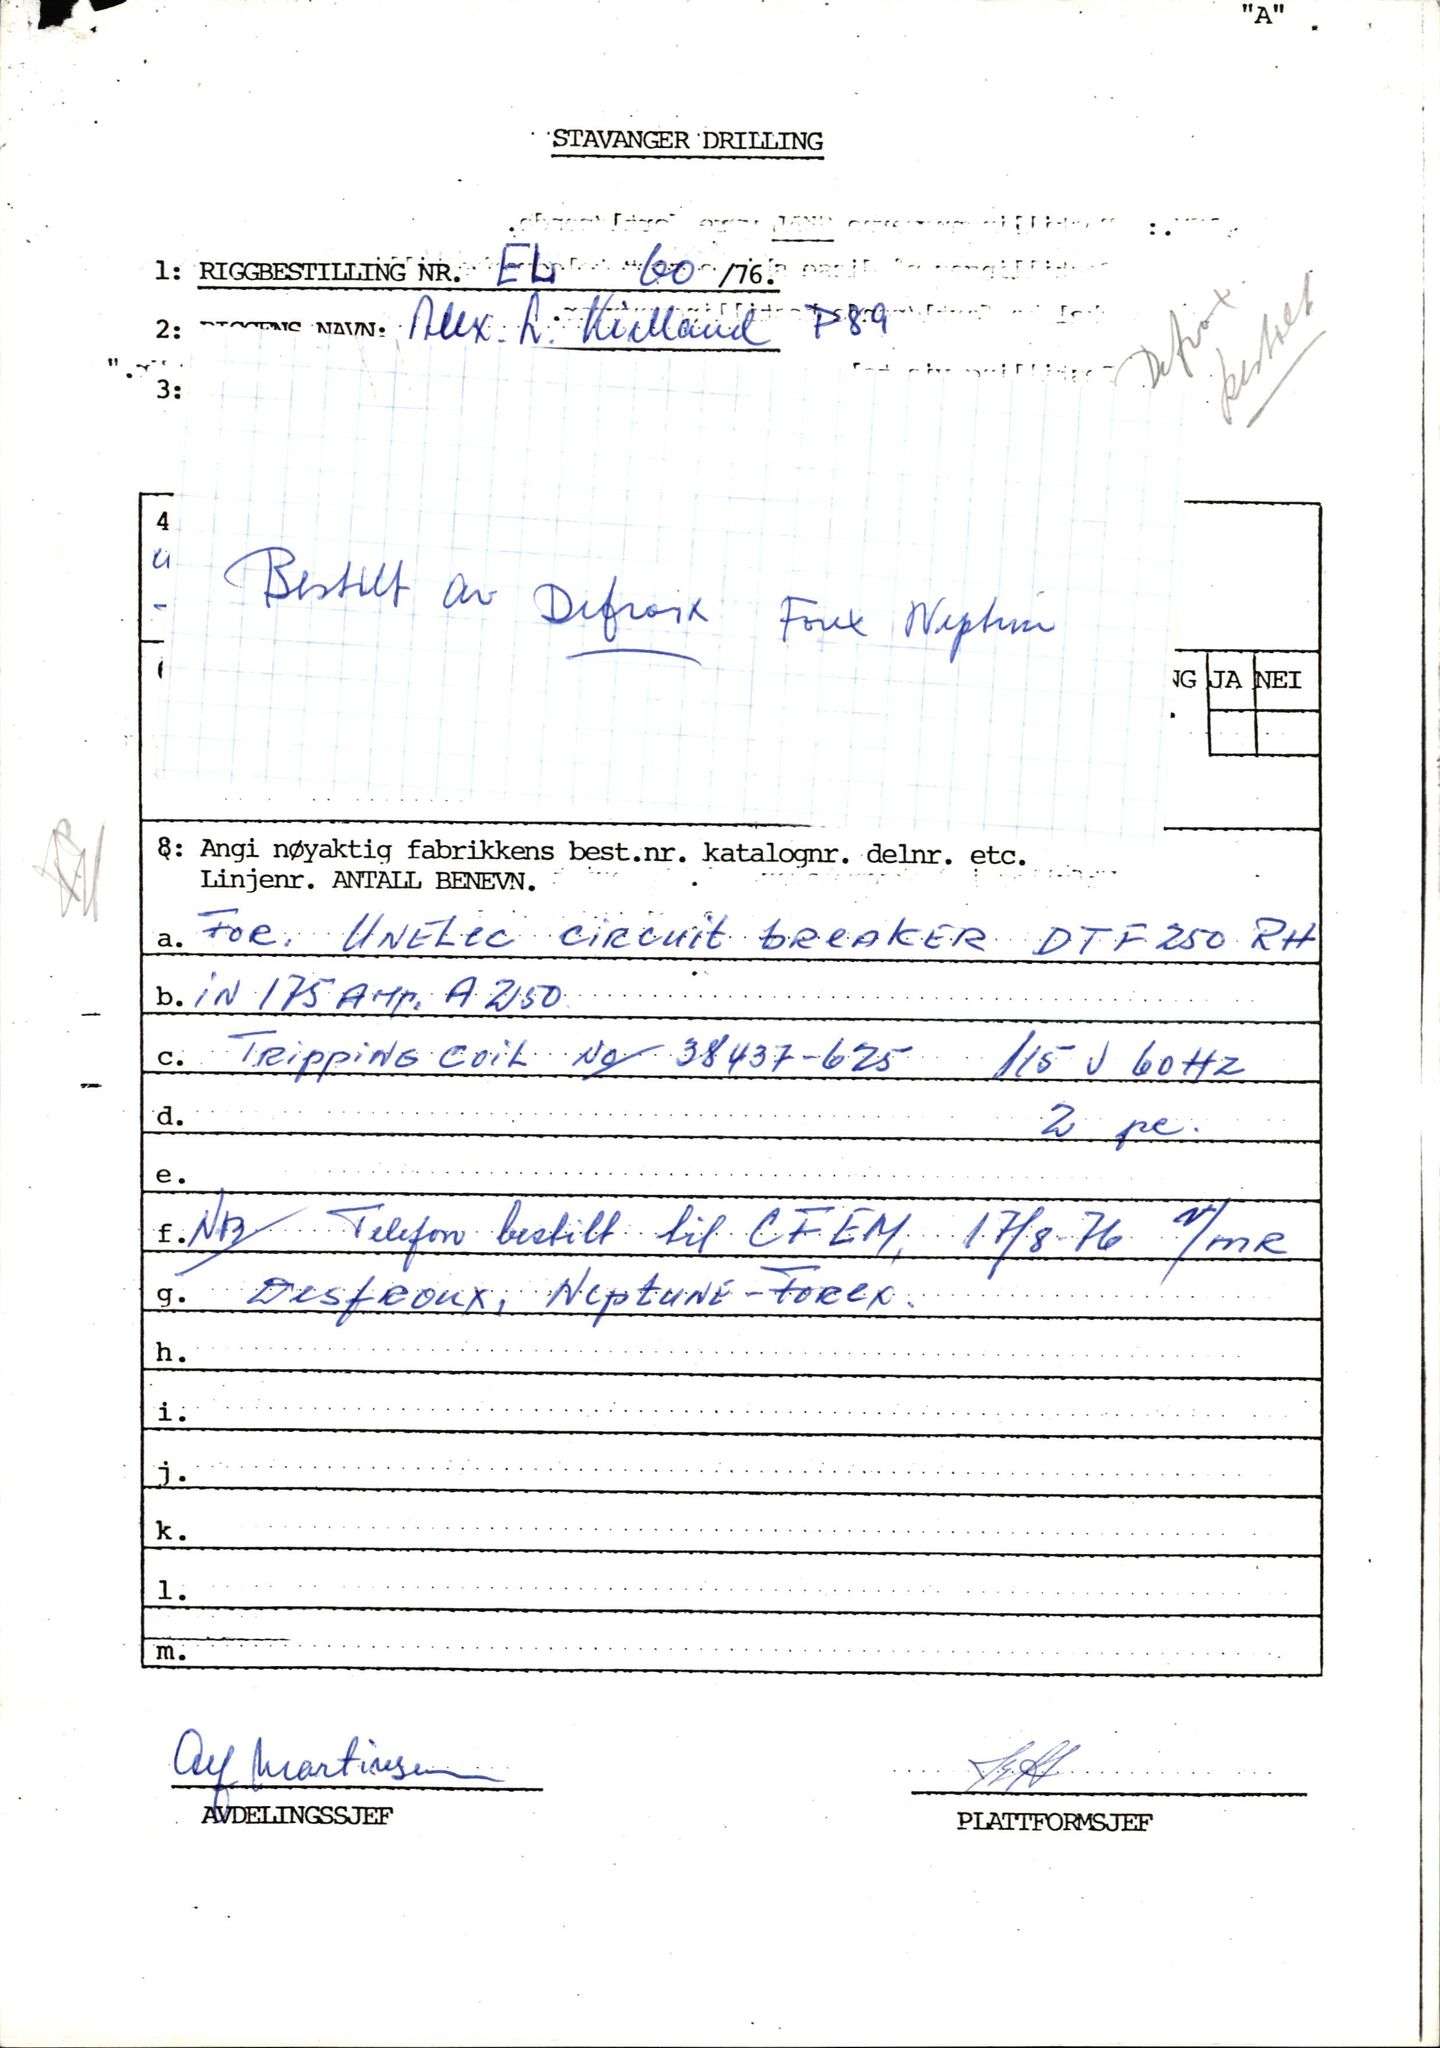 "A"
STAVANGER DRILLING
1: RIGGBESTILLING NR. EL 60 /76.
2: NAVN: Alex. L. Kielland P89
3:
bestilt
4
Bestilt av Defroix Forex Neptun
NG JA NEI
8: Angi nøyaktig fabrikkens best.nr. katalognr. delnr. etc.
Linjenr. ANTALL BENEVN.
a. FOR. UNELEC CIRCUIT BREAKER DTF 250 RH
b. IN 175 AMP. A 250
c. TRIPPING COIL No 38437-625 115 V 60 HZ
d. 2 pc.
e.
f. NB Telefon bestilt til CFEM, 17/8-76 v/MR
g. DESFROUX, NEPTUNE-FOREX.
h.
i.
j.
k.
l.
m.
Alf Martinsen
AVDELINGSSJEF
PLATTFORMSJEF